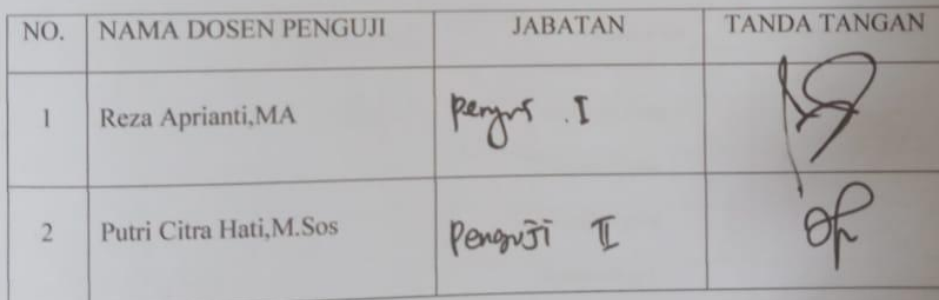 NO. NAMA DOSEN PENGUJI JABATAN TANDA TANGAN
1 Reza Aprianti,MA Penguji .I
2 Putri Citra Hati,M.Sos Penguji II